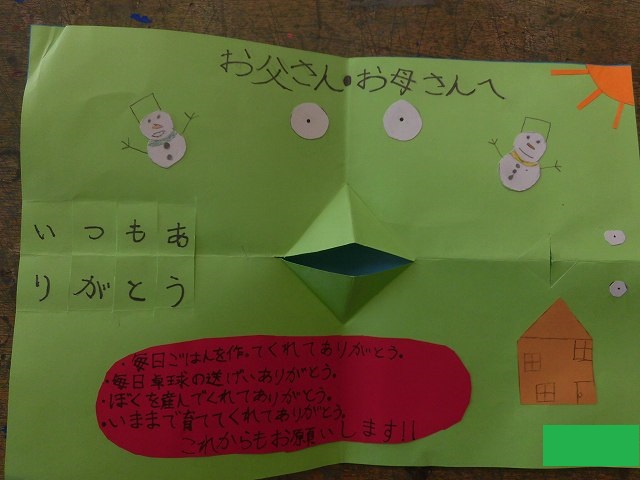 お父さん・お母さんへ
いつもあ
りがとう
・毎日ごはんを作ってくれてありがとう。
・毎日卓球の送げいありがとう。
・ぼくを産んでくれてありがとう。
・いままで育ててくれてありがとう。
これからもお願いします!!